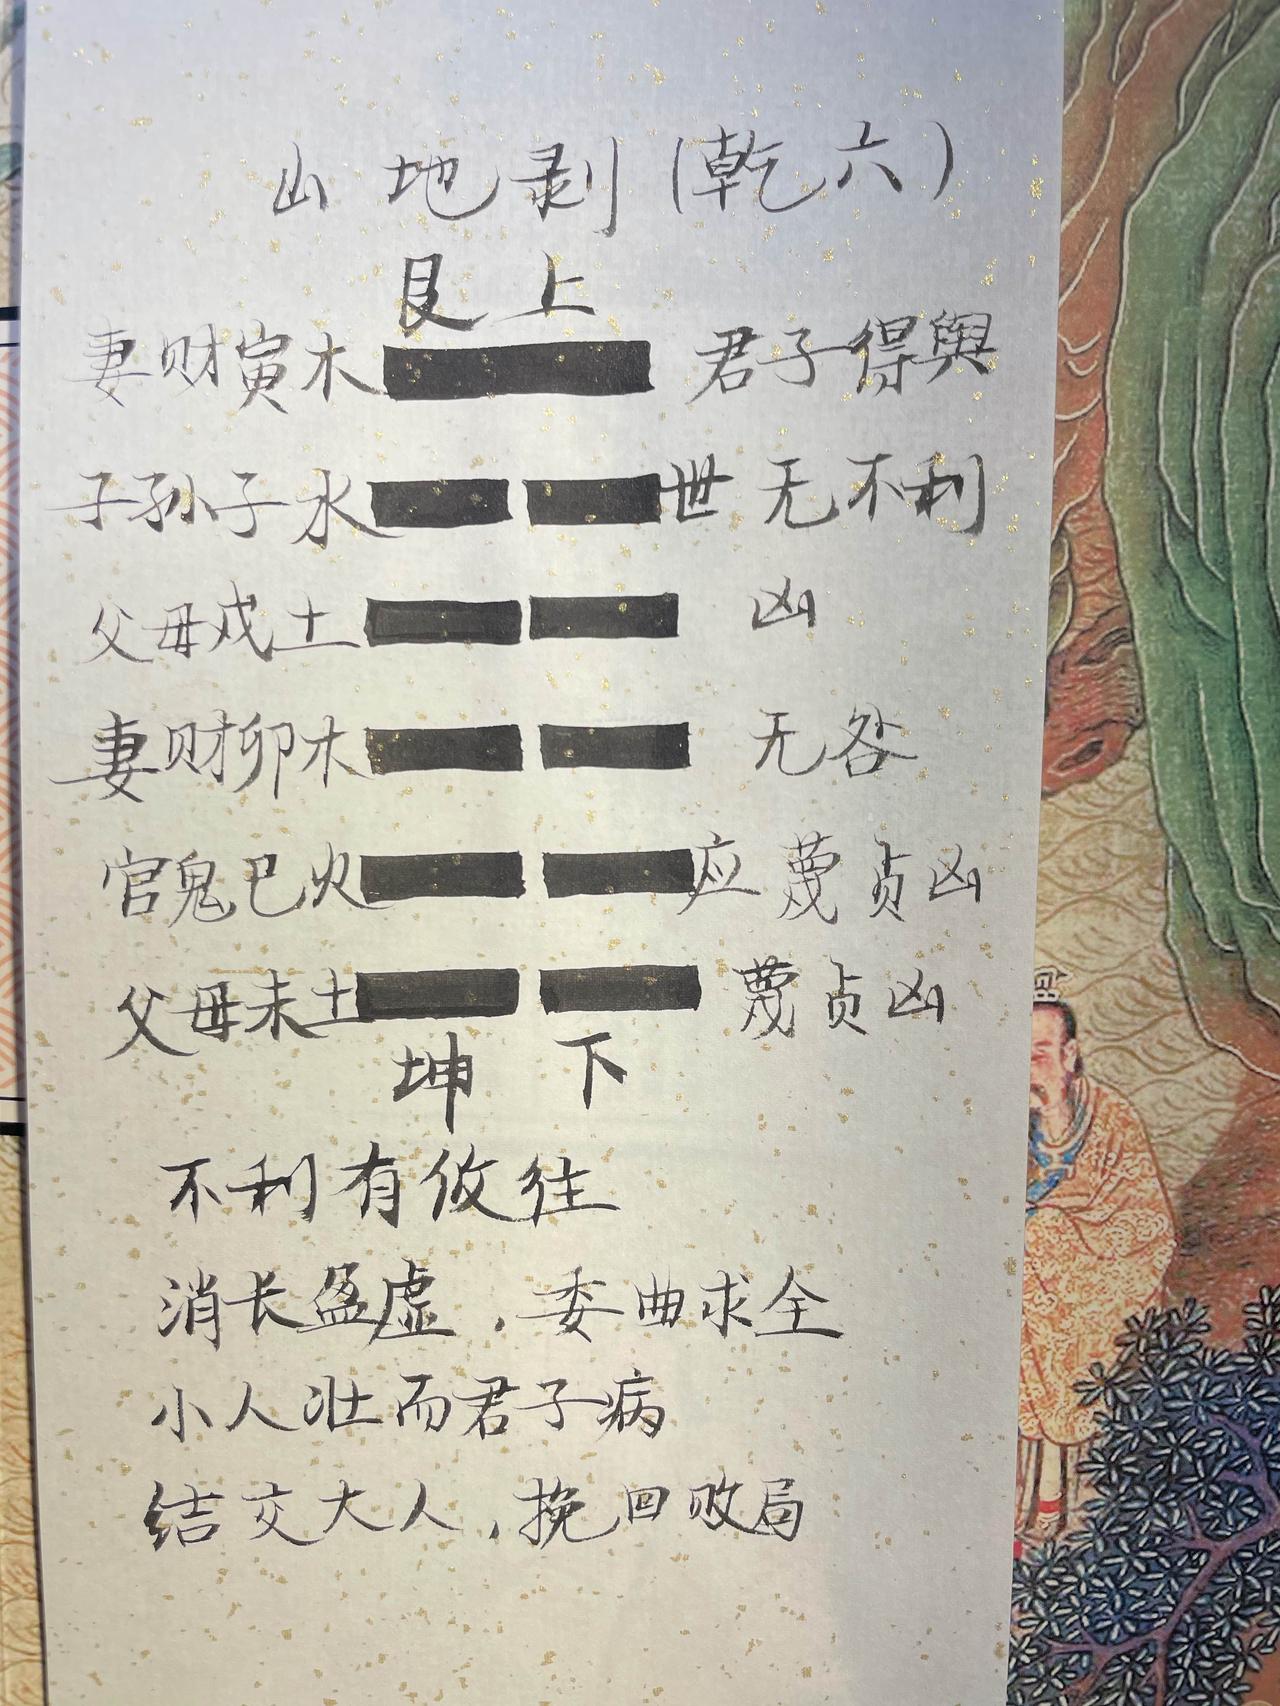 山地剥(乾六)
艮上
妻财寅木 君子得舆
子孙子水 世 无不利
父母戍土 凶
妻财卯木 无咎
官鬼巳火 应 蔑贞凶
父母未土 蔑贞凶
坤下
不利有攸往
消长盈虚,委曲求全
小人壮而君子病
结交大人,挽回败局